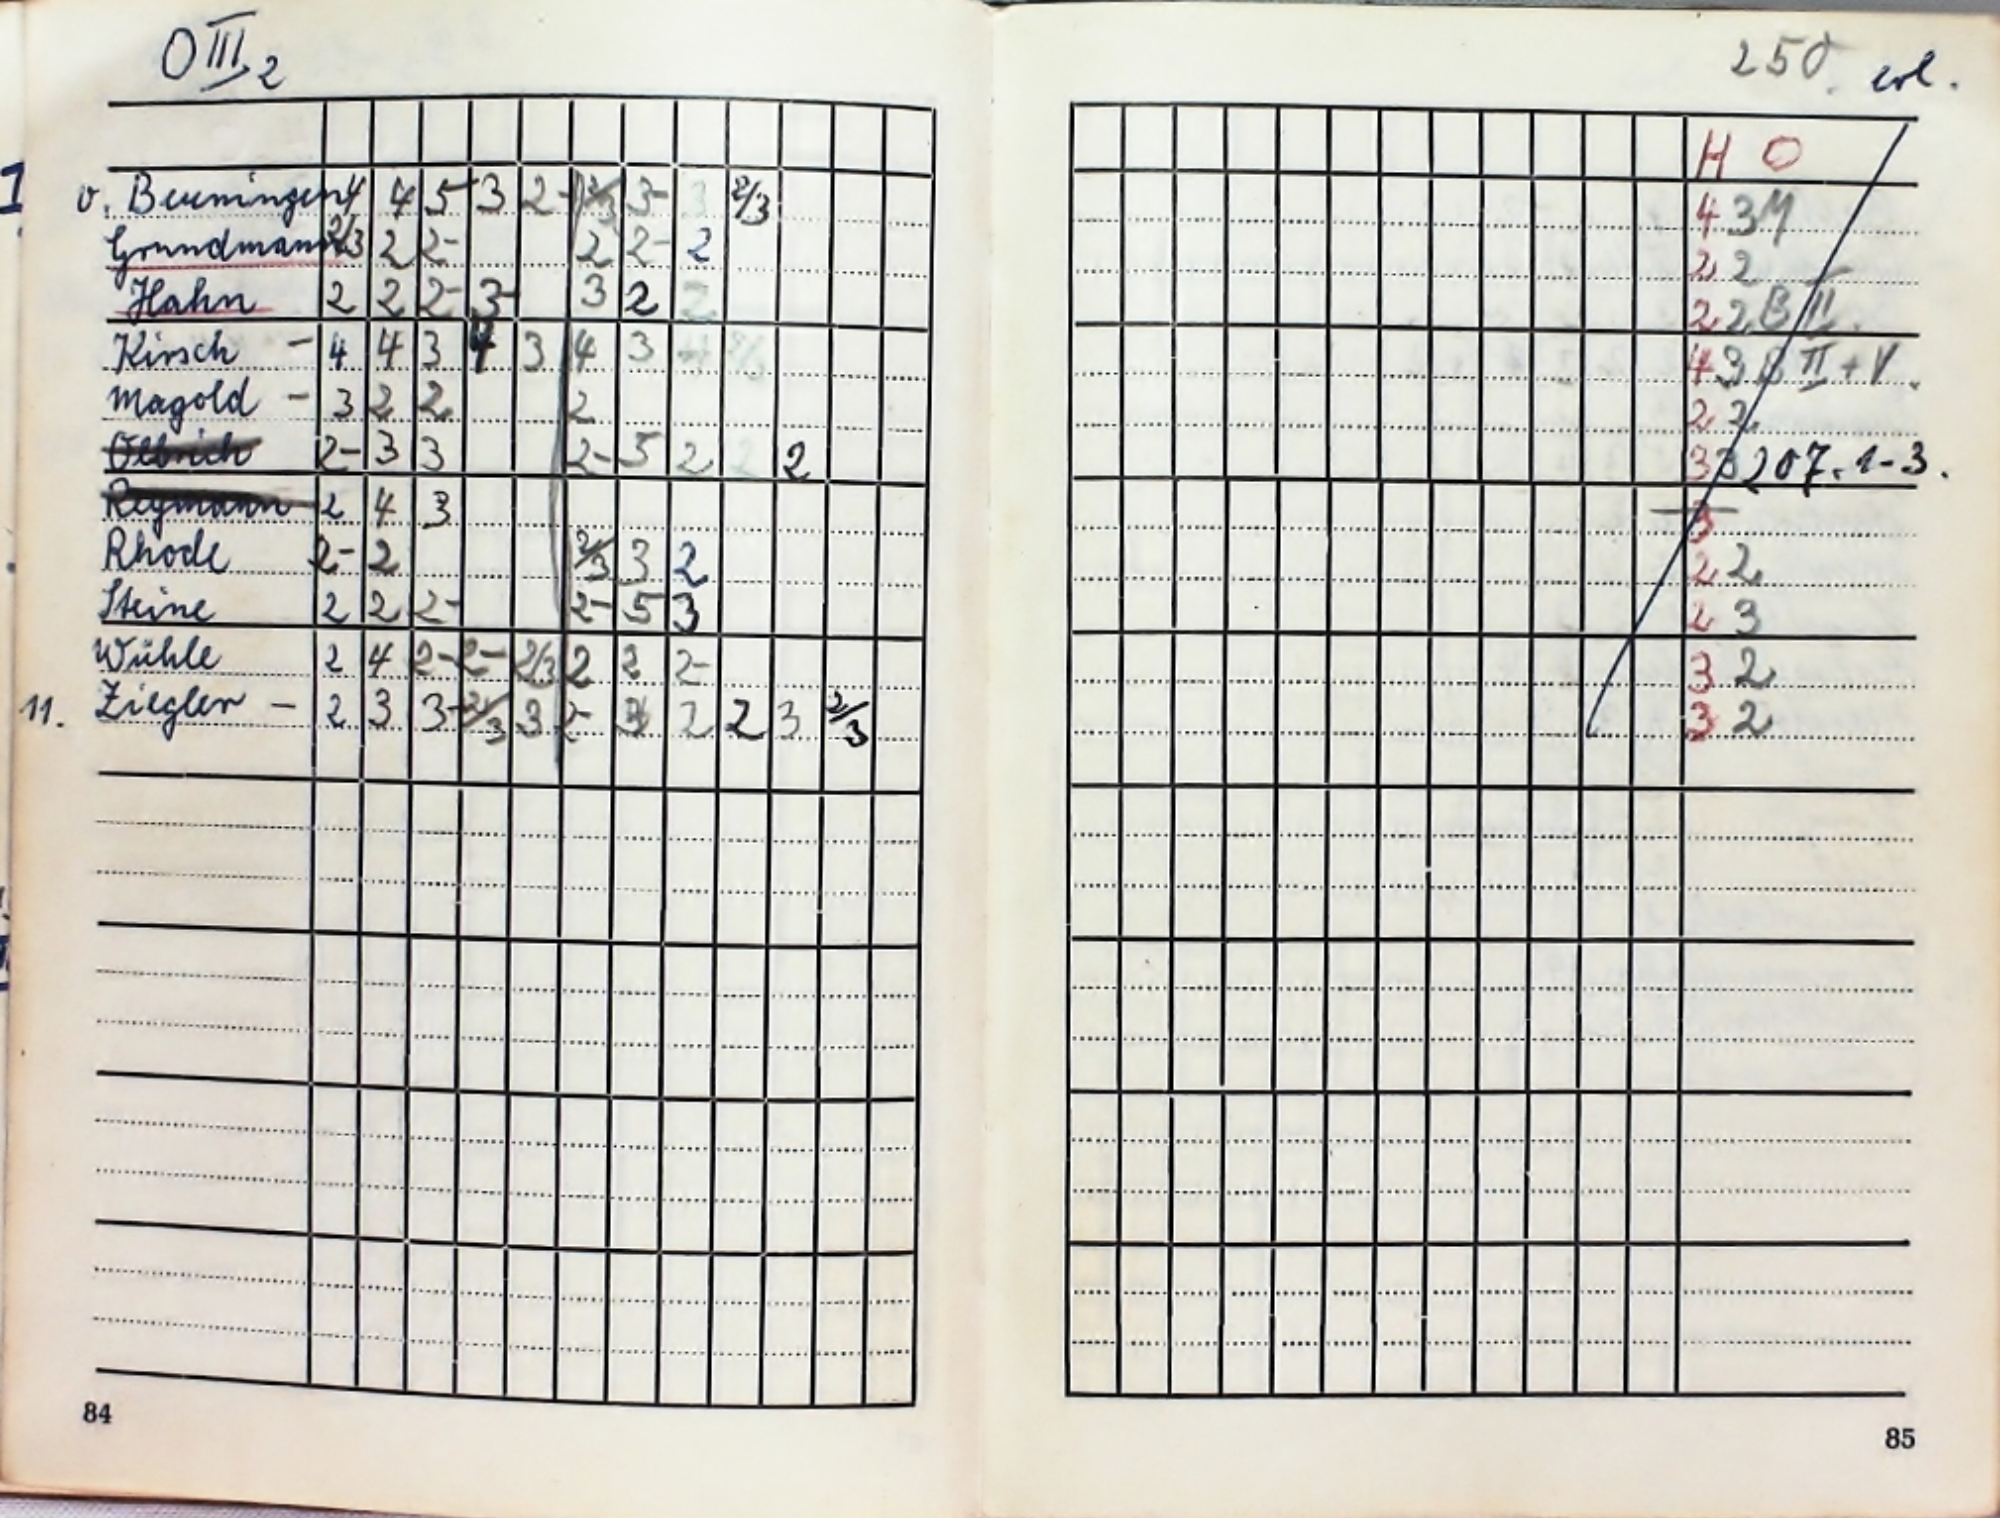 O III 2
v. Beuningen 4 4 5 3 2- 2/3 3- 3 2/3
Grundmann 2/3 2 2- 2 2- 2
Hahn 2 2 2- 3- 3 2 2
Kirsch - 4 4 3 4 3 4 3
Magold - 3 2 2 2
Olbrich 2- 3 3 2- 5 2 2 2
Regmann 2 4 3
Rhode 2- 2 2/3 3 2
Steine 2 2 2- 2- 5 3
Wühle 2 4 2- 2- 2/3 2 2 2-
11. Ziegler - 2 3 3- 2/3 3 2- 3 2 2 3 2/3
84
250. erl.
H O
4 3 M
2 2
2 2 B II.
4 3 II + V.
2 2
3 3 207. 1-3.
3
2 2
2 3
3 2
3 2
85